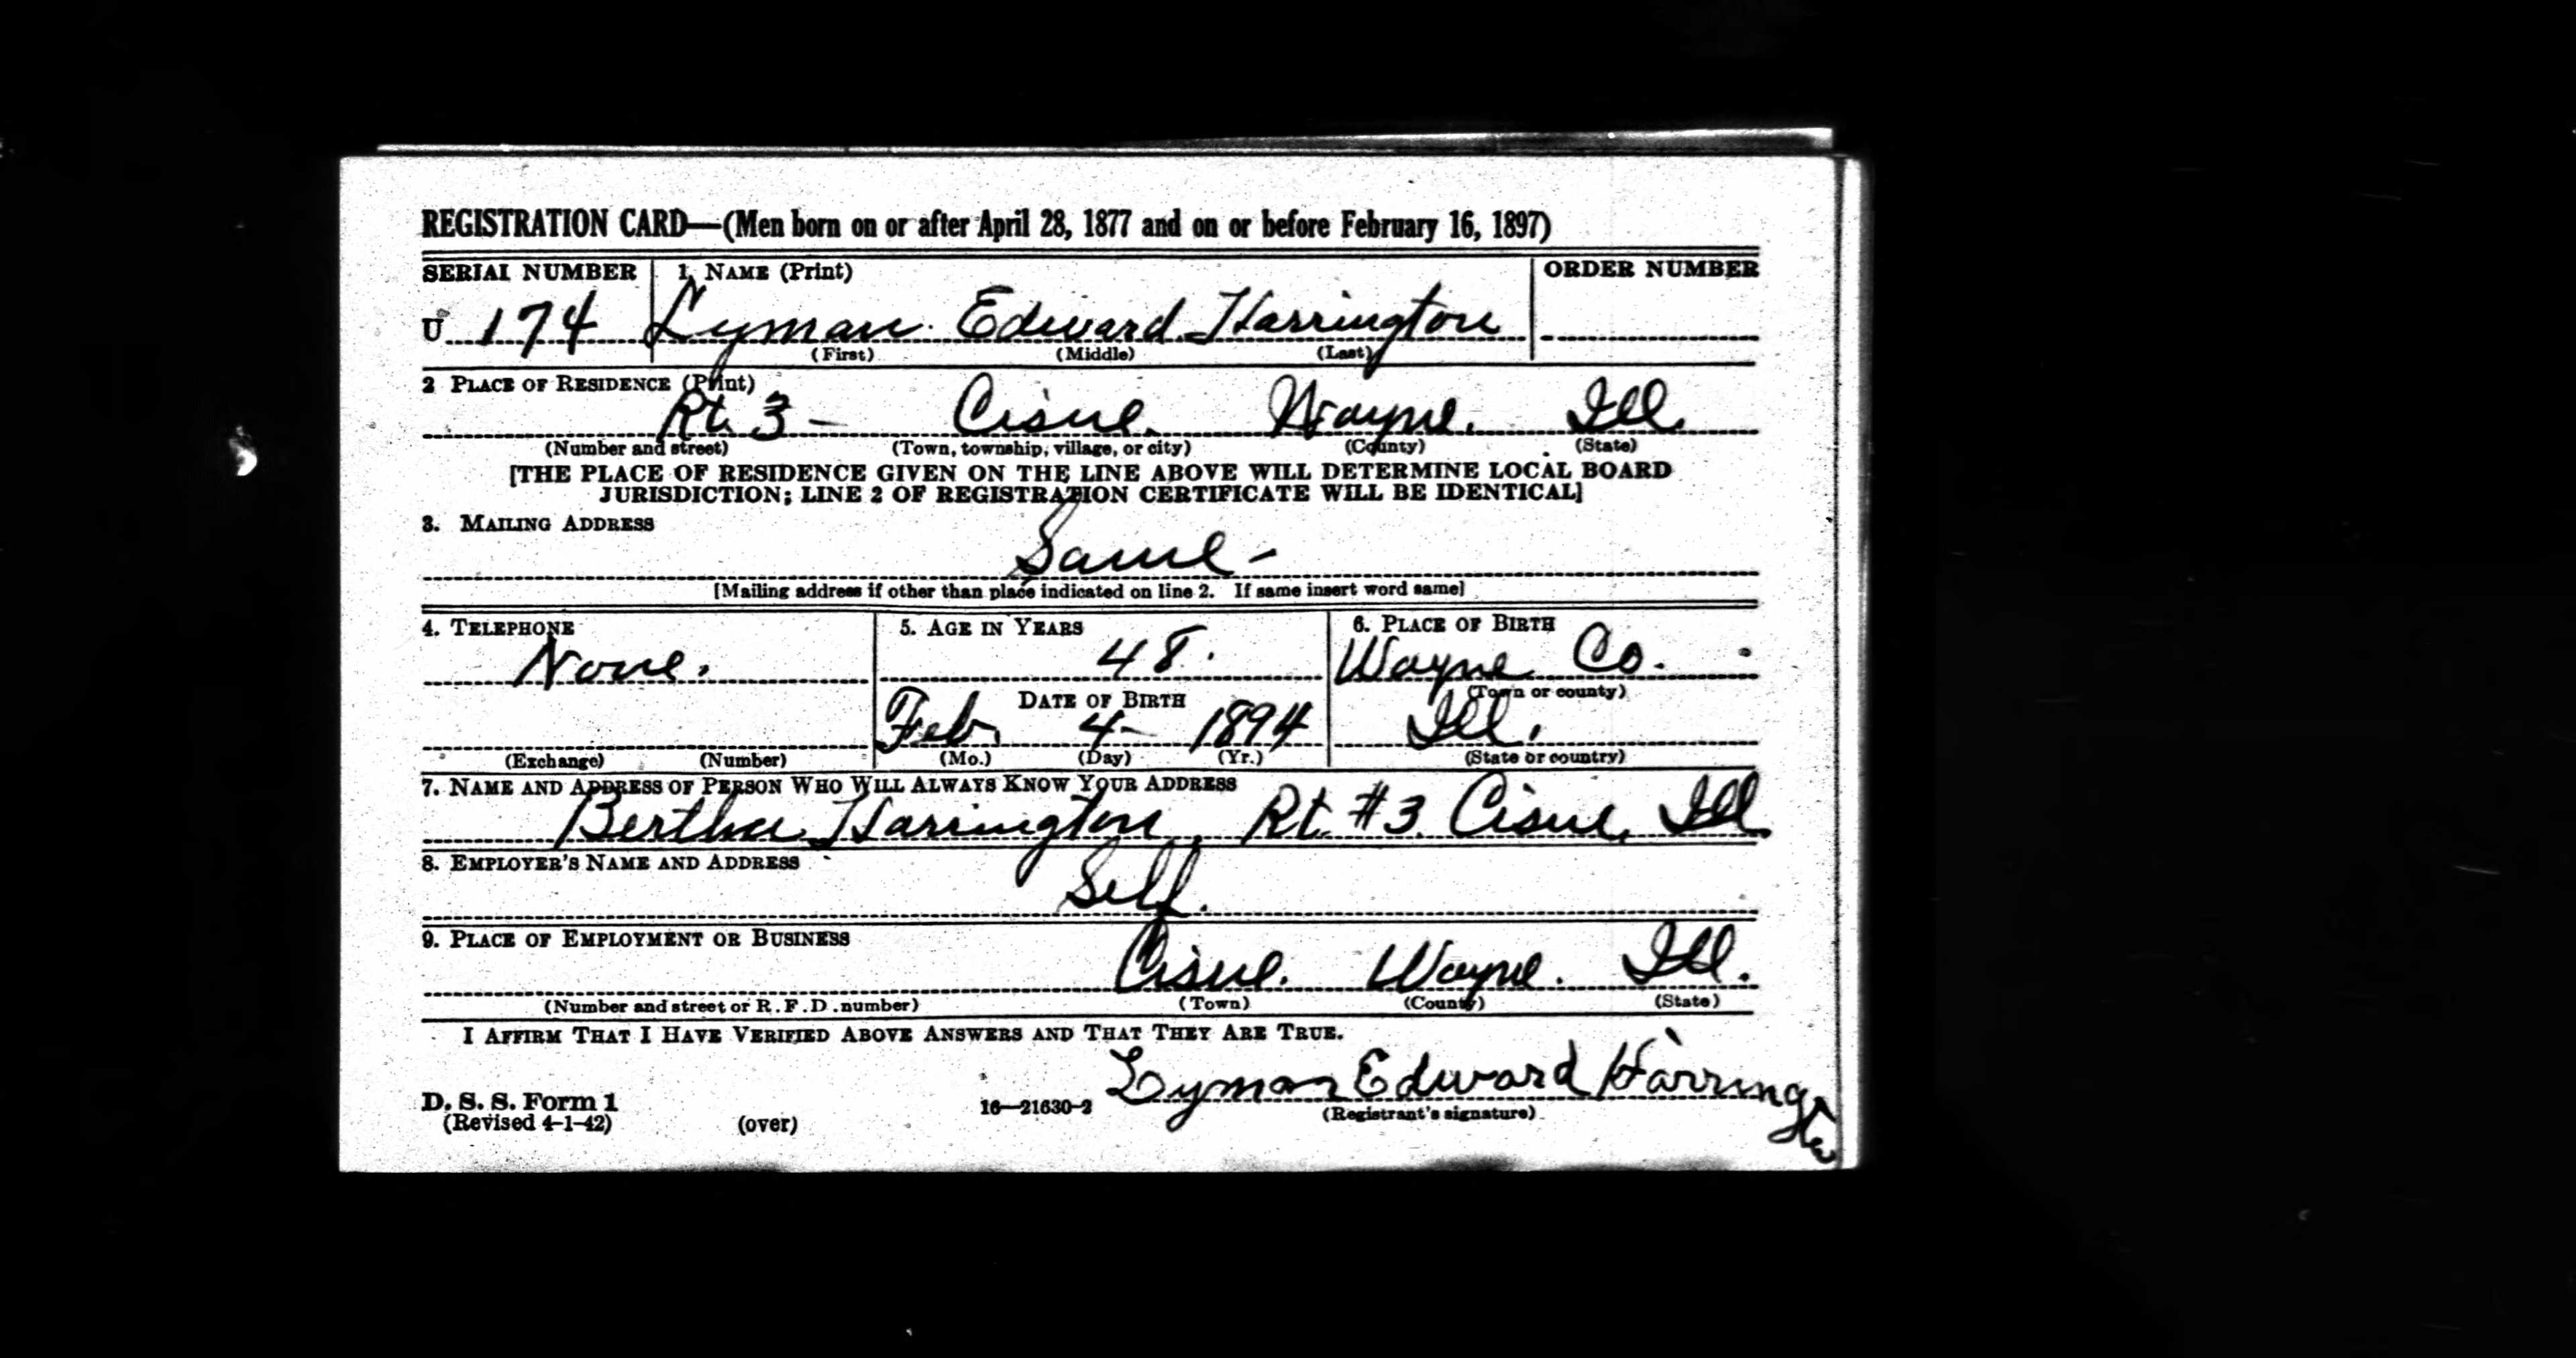 REGISTRATION CARD—(Men born on or after April 28, 1877 and on or before February 16, 1897)
SERIAL NUMBER 1. NAME (Print) ORDER NUMBER
U 174 Lyman Edward Harrington
(First) (Middle) (Last)
2 PLACE OF RESIDENCE (Print)
Rt. 3 - Cisne. Wayne. Ill.
(Number and street) (Town, township, village, or city) (County) (State)
[THE PLACE OF RESIDENCE GIVEN ON THE LINE ABOVE WILL DETERMINE LOCAL BOARD
JURISDICTION; LINE 2 OF REGISTRATION CERTIFICATE WILL BE IDENTICAL]
3. MAILING ADDRESS
Same -
[Mailing address if other than place indicated on line 2. If same insert word same]
4. TELEPHONE 5. AGE IN YEARS 6. PLACE OF BIRTH
None. 48. Wayne Co.
DATE OF BIRTH (Town or county)
Feb 4- 1894 Ill.
(Exchange) (Number) (Mo.) (Day) (Yr.) (State or country)
7. NAME AND ADDRESS OF PERSON WHO WILL ALWAYS KNOW YOUR ADDRESS
Bertha Harrington, Rt. #3. Cisne, Ill.
8. EMPLOYER'S NAME AND ADDRESS
Self.
9. PLACE OF EMPLOYMENT OR BUSINESS
Cisne. Wayne. Ill.
(Number and street or R.F.D. number) (Town) (County) (State)
I AFFIRM THAT I HAVE VERIFIED ABOVE ANSWERS AND THAT THEY ARE TRUE.
Lyman Edward Harrington
D. S. S. Form 1 16—21630-2 (Registrant's signature)
(Revised 4-1-42) (over)